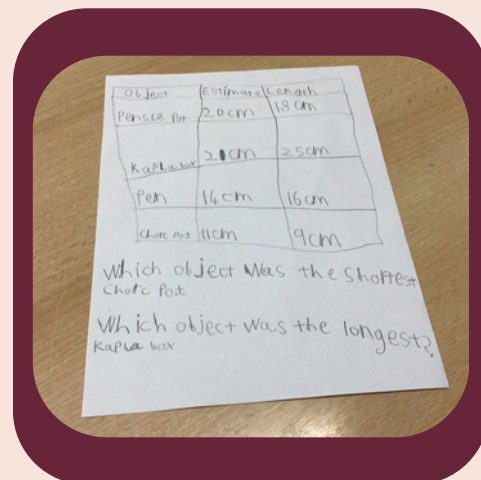 Object Estimate Length
Pensle Pot 20cm 18cm
Kapla box 21cm 25cm
Pen 14cm 16cm
Chorc Pot 11cm 9cm
Which object was the shortest
Chorc Pot
Which object was the longest?
Kapla box